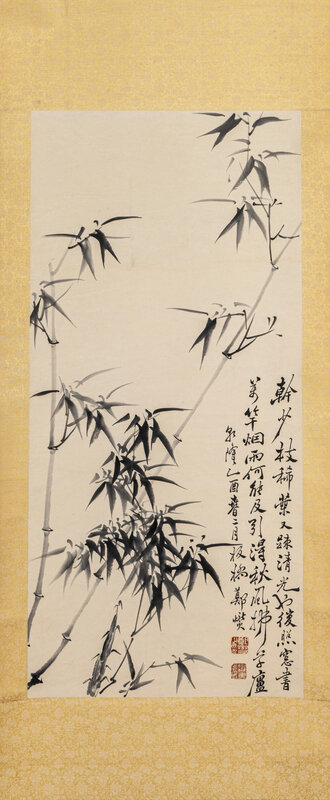 幹少枝稀葉又疎清光好後照窓書
萬竿烟雨何能及引得秋風拂草廬
乾隆乙酉春二月板橋鄭燮